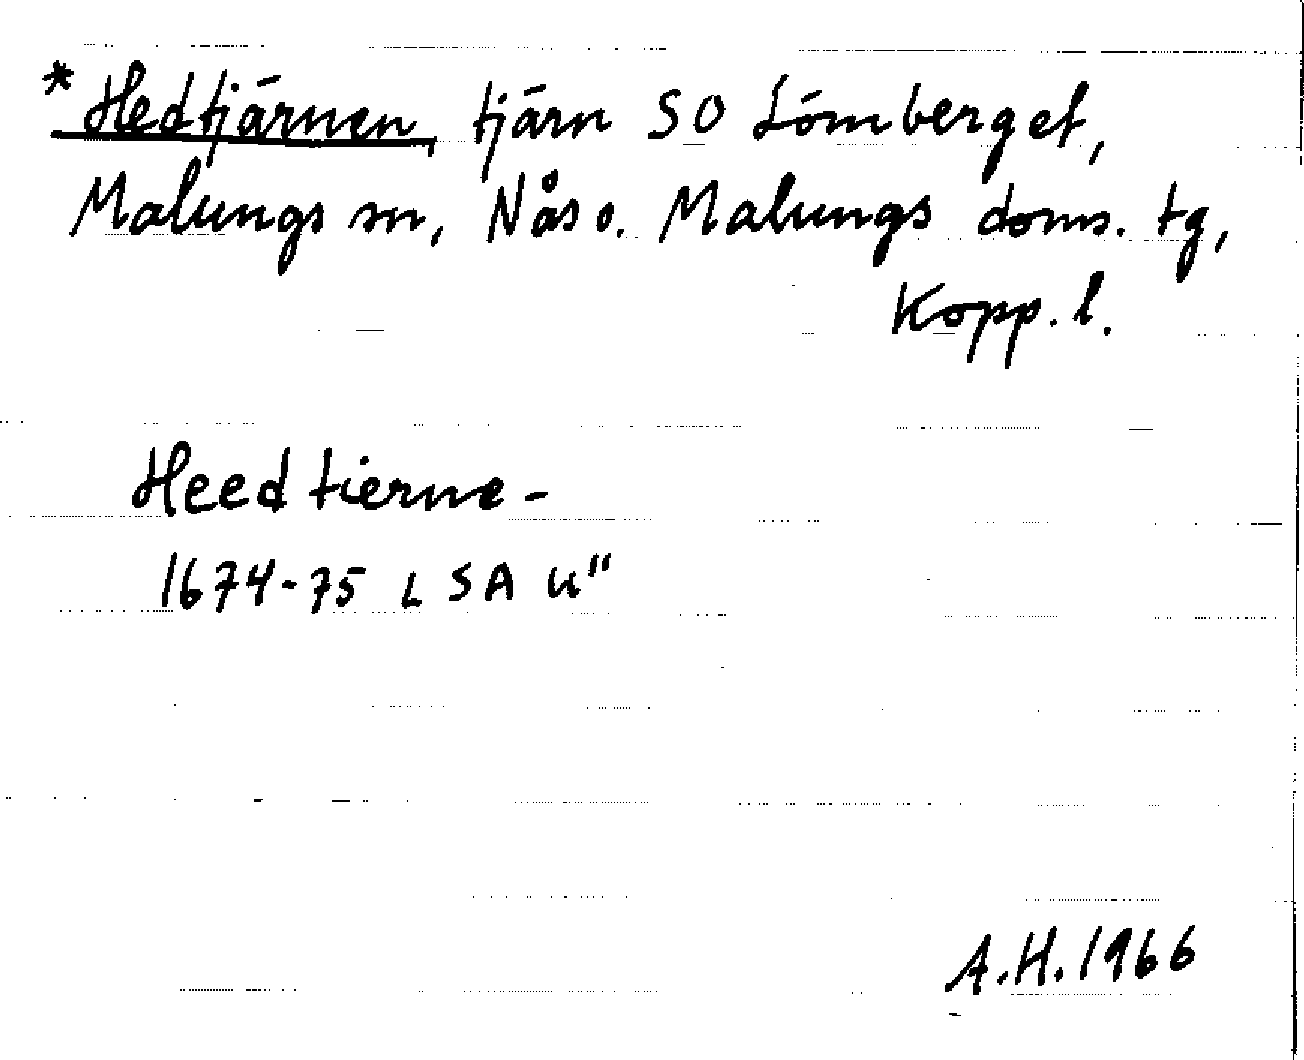 *Hedtjärnen, tjärn SO Lömberget,
Malungs sn, Nås o. Malungs doms. tg,
Kopp. l.
Heedtierne-
1674-75 L S A U"
A.H. 1966